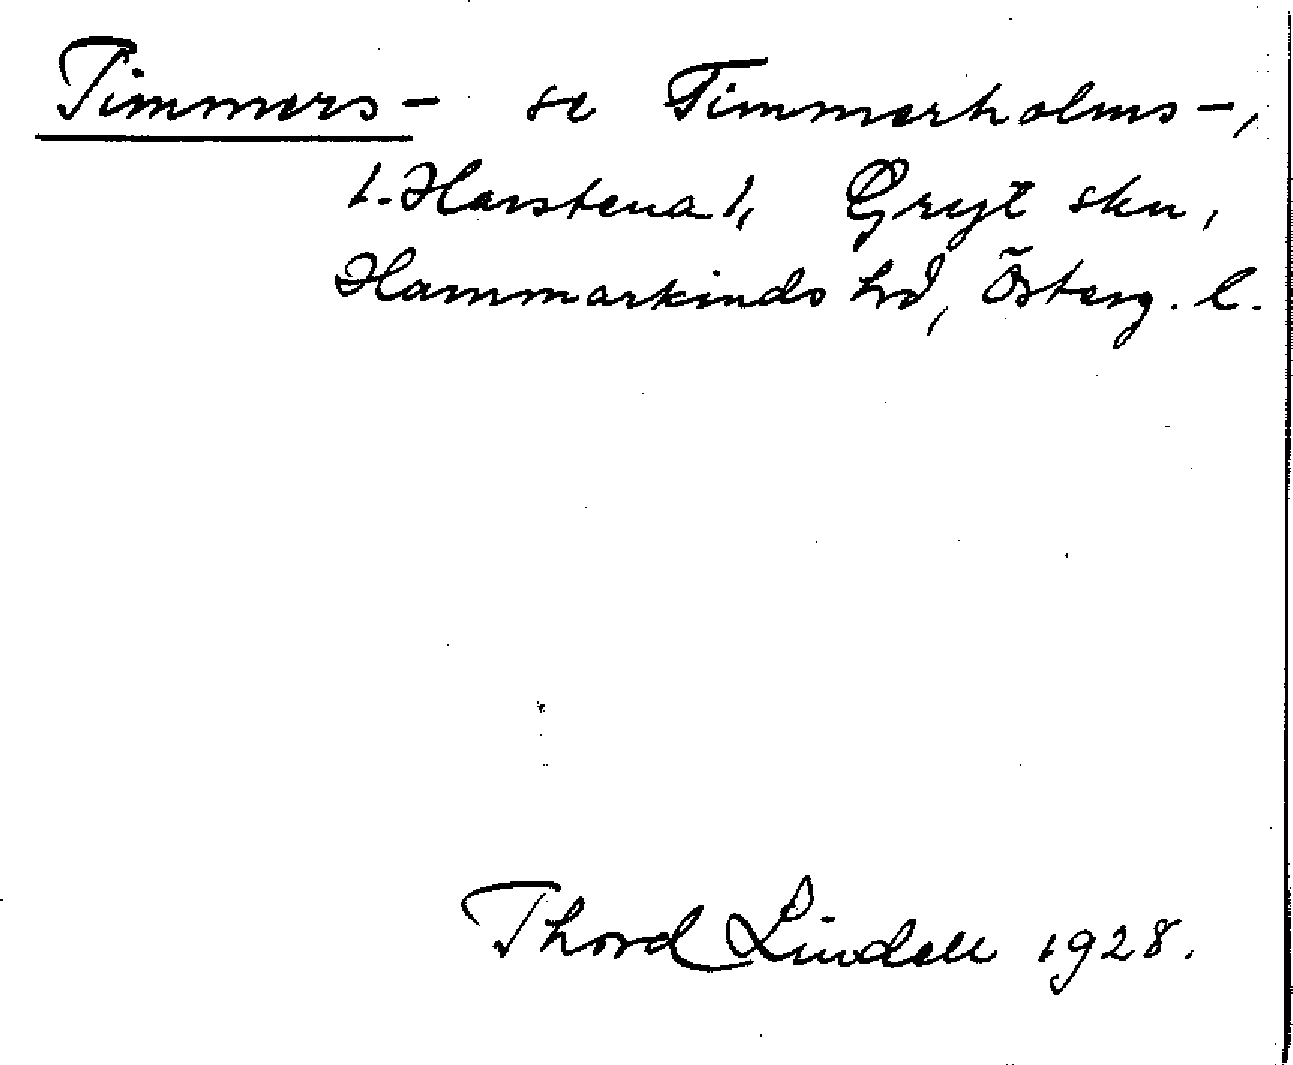 Timmers- se Timmerholms-,
1. Harstena 1, Gryt skn,
Hammarkinds hd, Österg. l.
Thord Lindell 1928.